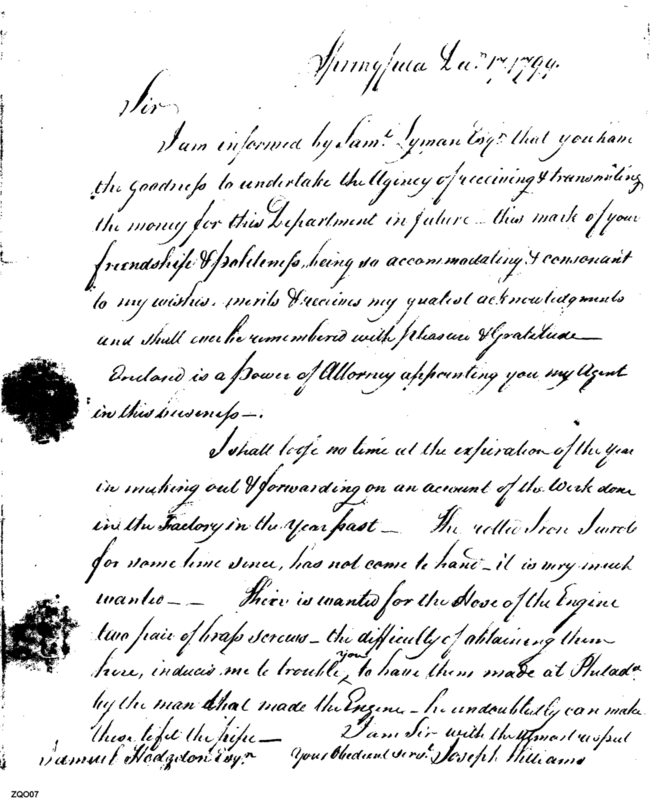 Springfield Decr. 17. 1799.
Sir
I am informed by Saml. Lyman Esqr. that you have
the Goodness to undertake the Agency of receiving & transmitting
the money for this Department in future — this mark of your
friendship & politeness, being so accommodating & consonant
to my wishes, merits & receives my greatest acknowledgments
and shall ever be remembered with pleasure & Gratitude —
Enclosed is a Power of Attorney appointing you my Agent
in this business —.
I shall loose no time at the expiration of the Year
in making out & forwarding on an account of the Work done
in the Factory in the Year past — The rolled Iron I wrote
for some time since, has not come to hand — it is very much
wanted — — There is wanted for the Hose of the Engine
two pair of brass screws — the difficulty of obtaining them
here, induces me to trouble you to have them made at Philada.
by the man that made the Engine — he undoubtedly can make
these to fit the pipe — I am Sir with the utmost respect
Samuel Hodgdon Esqr. Your Obedient Servt. Joseph Williams
ZQO07